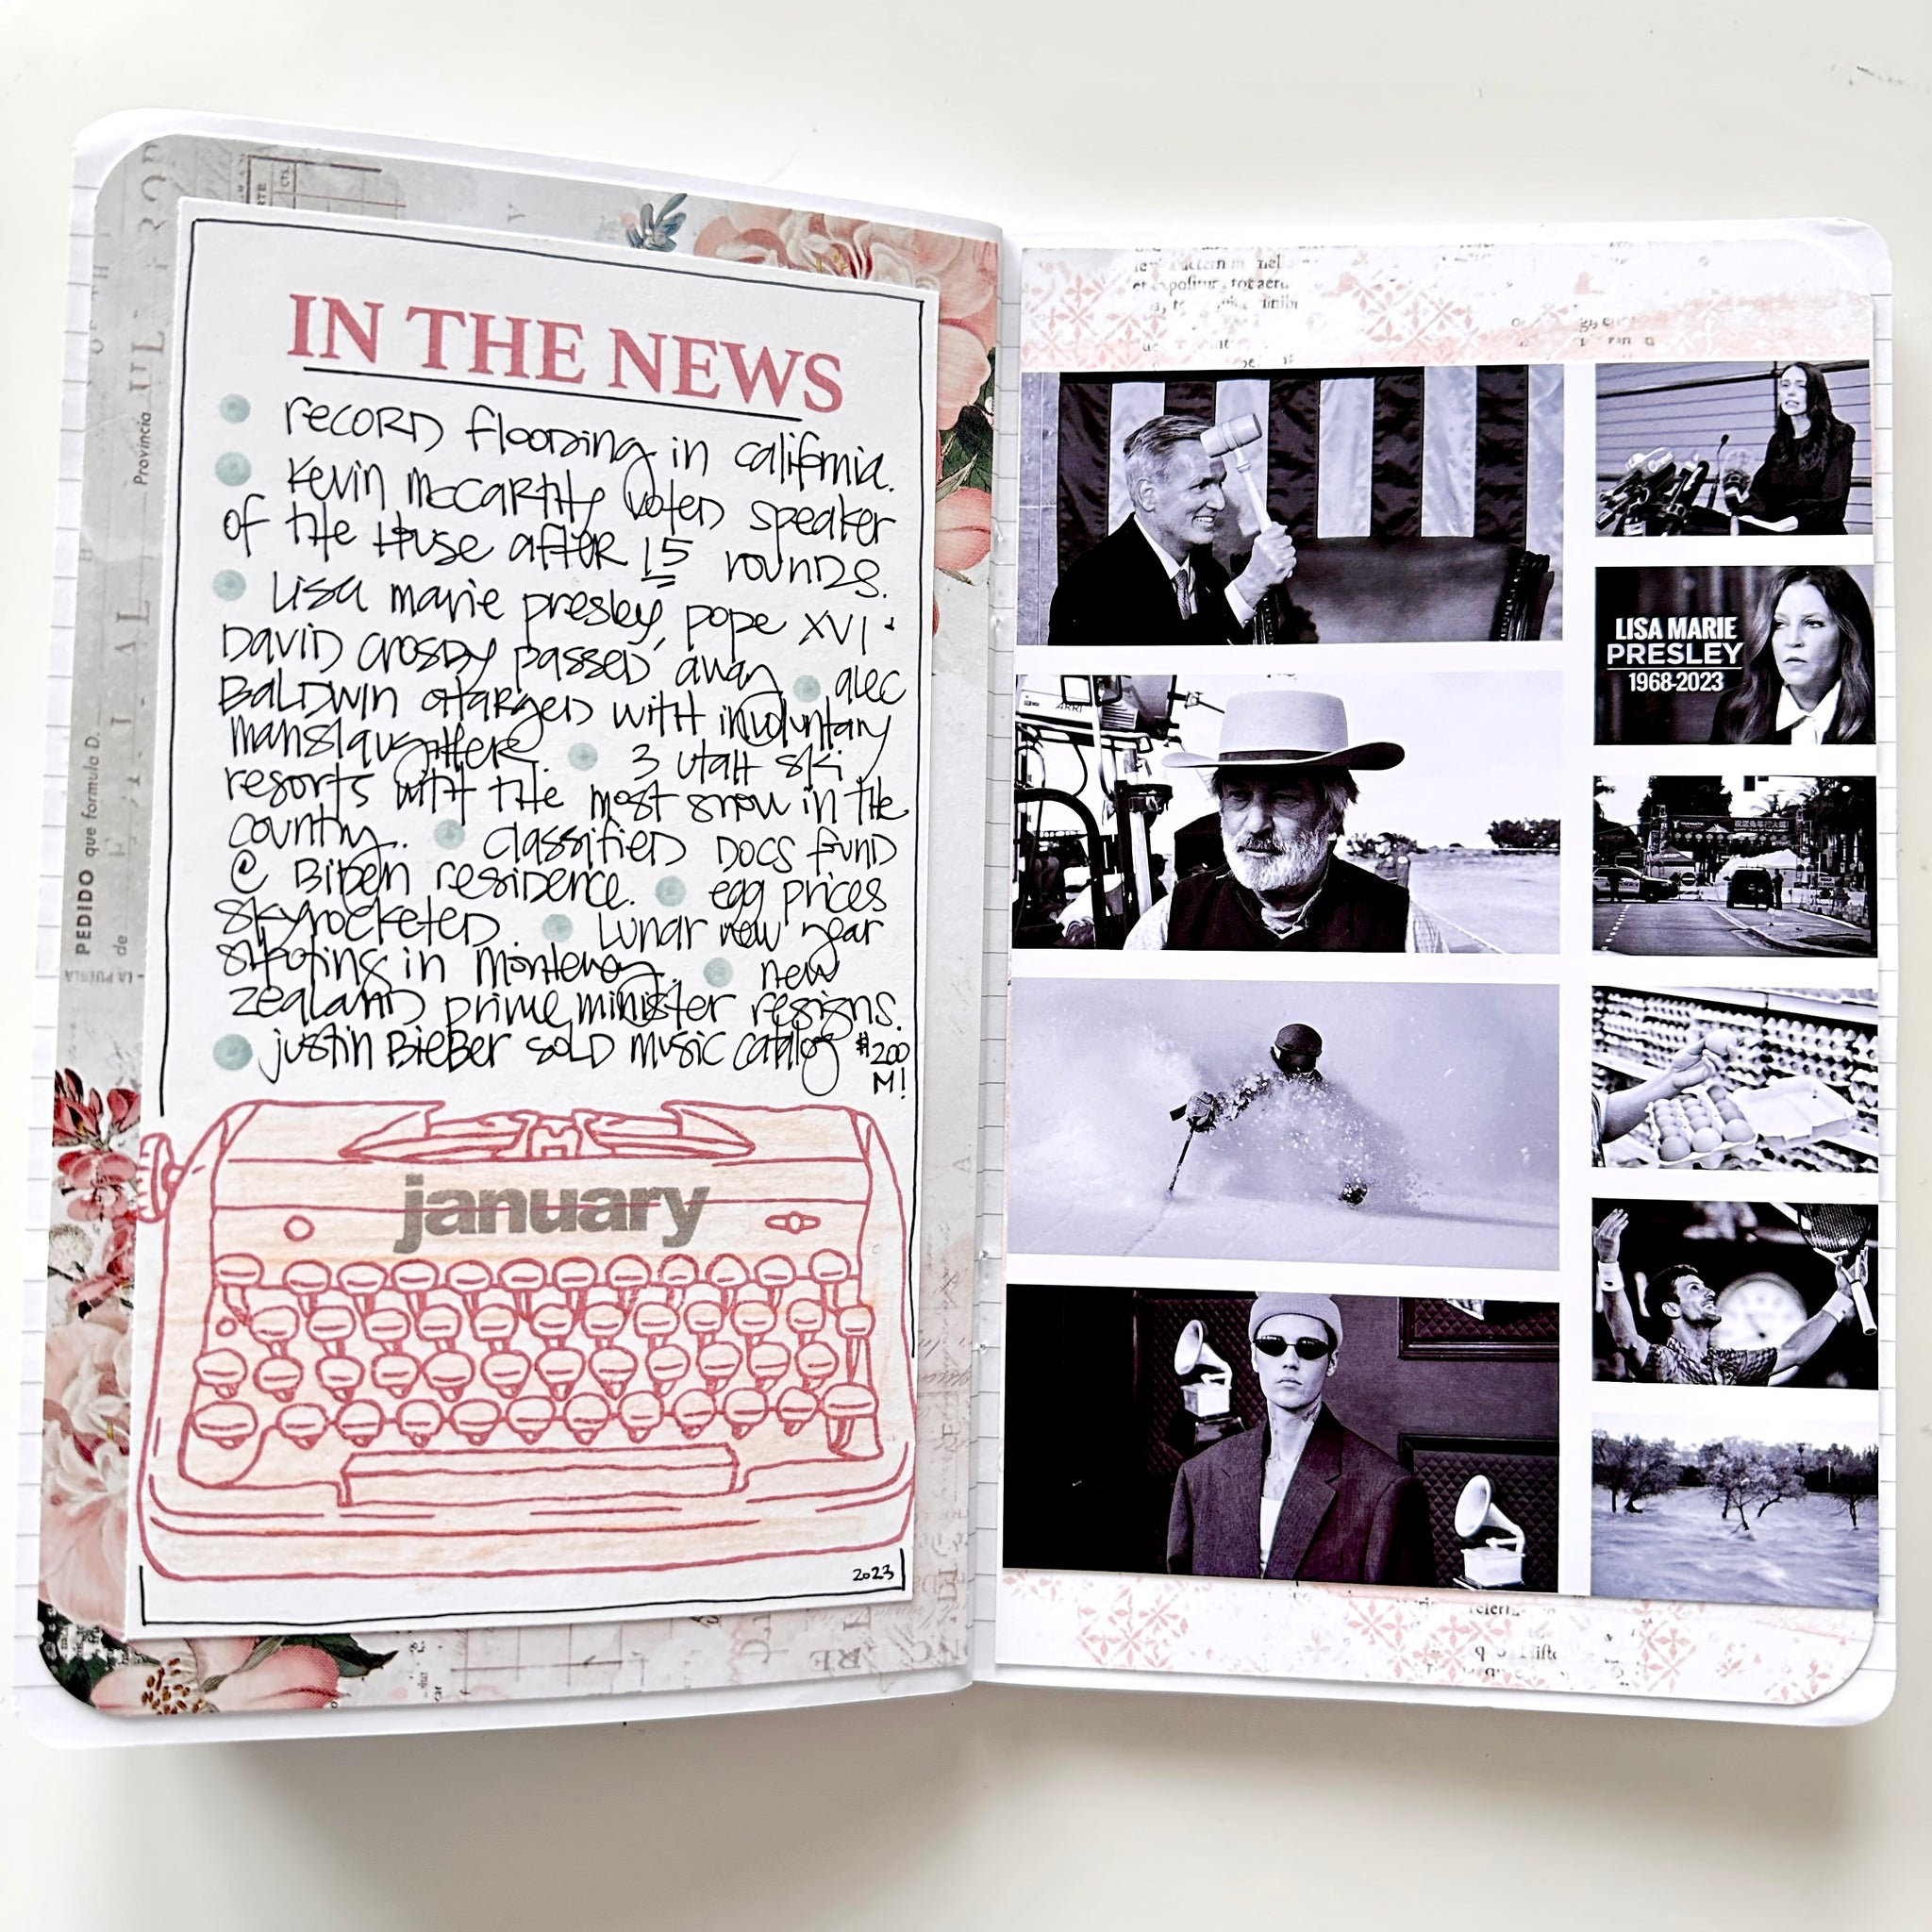 IN THE NEWS
record flooding in california.
Kevin mccarthy voted speaker
of the House after 15 rounds.
Lisa marie presley, pope XVI +
David crosby passed away. alec
Baldwin charged with involuntary
manslaughtere. 3 utah ski
resorts with the most snow in the
country. classified docs fund
@ Biden residence. egg prices
skyrocketed. Lunar new year
shooting in monterey. new
zealand prime minister resigns.
justin Bieber sold music catalog $200
M!
january
2023
PEDIDO que formula D.
de
Provincia
LA PUEBLA
CTS.
LISA MARIE
PRESLEY
1968-2023
ARRI